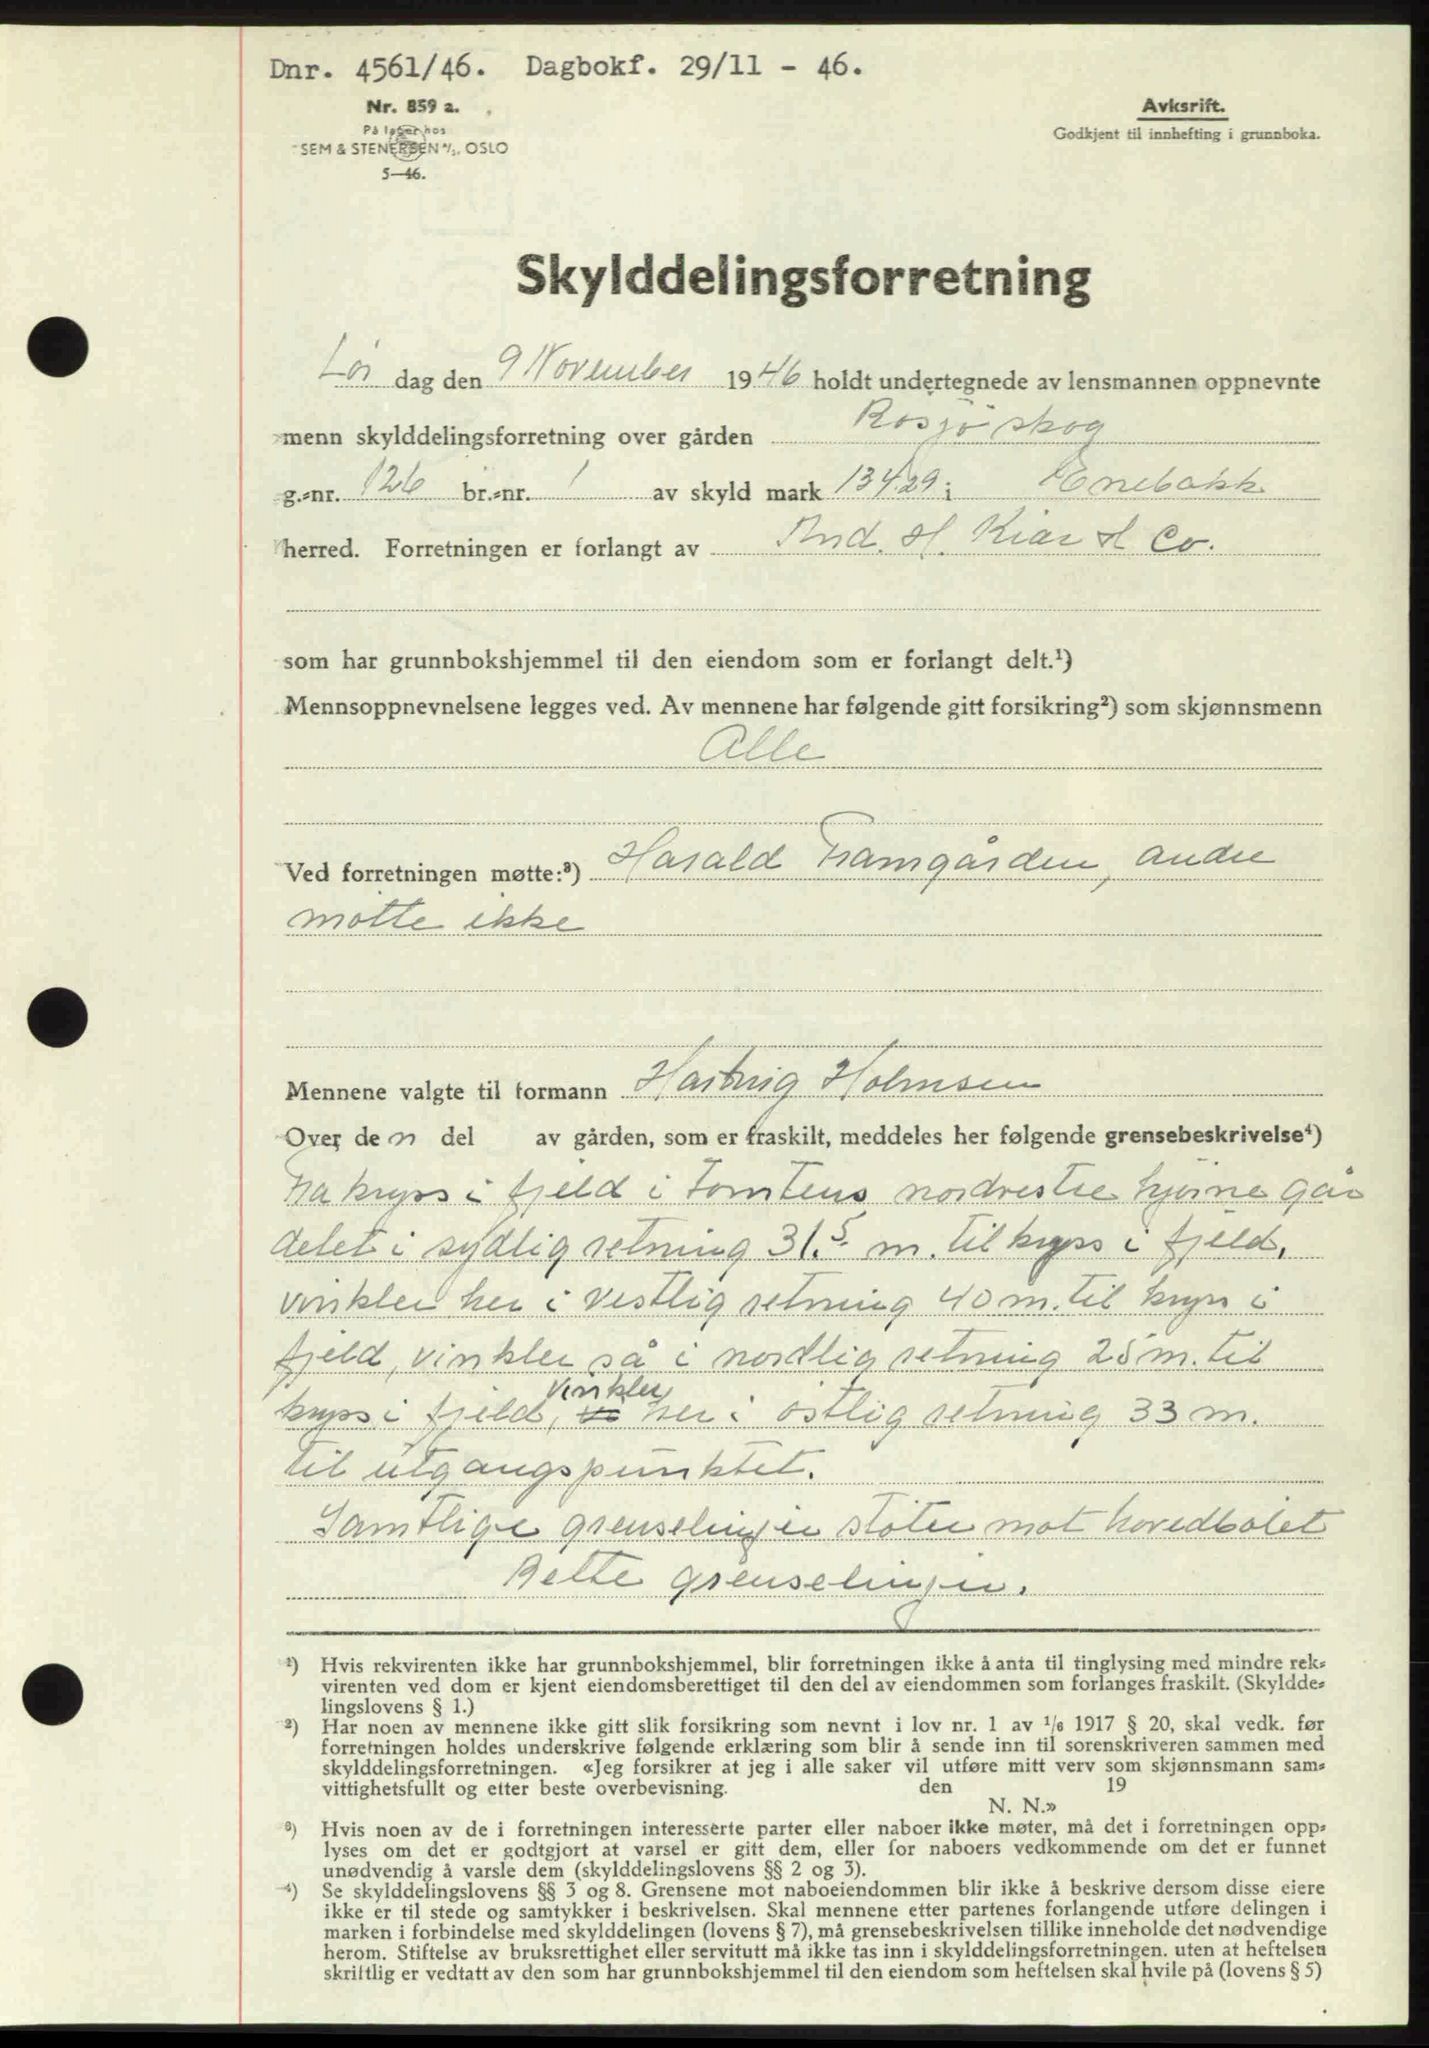 Dnr. 4561/46. Dagbokf. 29/11 - 46.
Nr. 859 a.
På lager hos
SEM & STENERSEN A/S, OSLO
5-46.
Avksrift.
Godkjent til innhefting i grunnboka.
Skylddelingsforretning
Lör dag den 9 November 1946 holdt undertegnede av lensmannen oppnevnte
menn skylddelingsforretning over gården Rosjö skog
g.-nr. 126 br.-nr. 1 av skyld mark 134.29 i Enebakk
herred. Forretningen er forlangt av And. H. Kiær & Co.
som har grunnbokshjemmel til den eiendom som er forlangt delt.¹)
Mennsoppnevnelsene legges ved. Av mennene har følgende gitt forsikring²) som skjønnsmenn
Alle
Ved forretningen møtte:³) Harald Framgården, andre
møtte ikke
Mennene valgte til formann Hartvig Holmsen
Over de n del av gården, som er fraskilt, meddeles her følgende grensebeskrivelse⁴)
Fra kryss i fjeld i Tomtens nordvestre hjørne går
delet i sydlig retning 31.5 m. til kryss i fjeld,
vinkler her i vestlig retning 40 m. til kryss i
fjeld, vinkler så i nordlig retning 25 m. til
kryss i fjeld, vinkler her i östlig retning 33 m.
til utgangspunktet.
Samtlige grenselinjer støter mot hovedbølet
Rette grenselinjer.
¹) Hvis rekvirenten ikke har grunnbokshjemmel, blir forretningen ikke å anta til tinglysing med mindre rek-
virenten ved dom er kjent eiendomsberettiget til den del av eiendommen som forlanges fraskilt. (Skyldde-
lingslovens § 1.)
²) Har noen av mennene ikke gitt slik forsikring som nevnt i lov nr. 1 av 1/6 1917 § 20, skal vedk. før
forretningen holdes underskrive følgende erklæring som blir å sende inn til sorenskriveren sammen med
skylddelingsforretningen. «Jeg forsikrer at jeg i alle saker vil utføre mitt verv som skjønnsmann sam-
vittighetsfullt og etter beste overbevisning. den 19
N. N.»
³) Hvis noen av de i forretningen interesserte parter eller naboer ikke møter, må det i forretningen opp-
lyses om det er godtgjort at varsel er gitt dem, eller for naboers vedkommende om det er funnet
unødvendig å varsle dem (skylddelingslovens §§ 2 og 3).
⁴) Se skylddelingslovens §§ 3 og 8. Grensene mot naboeiendommen blir ikke å beskrive dersom disse eiere
ikke er til stede og samtykker i beskrivelsen. Skal mennene etter partenes forlangende utføre delingen i
marken i forbindelse med skylddelingen (lovens § 7), må grensebeskrivelsen tillike inneholde det nødvendige
herom. Stiftelse av bruksrettighet eller servitutt må ikke tas inn i skylddelingsforretningen. uten at heftelsen
skriftlig er vedtatt av den som har grunnbokshjemmel til den eiendom som heftelsen skal hvile på (lovens § 5)